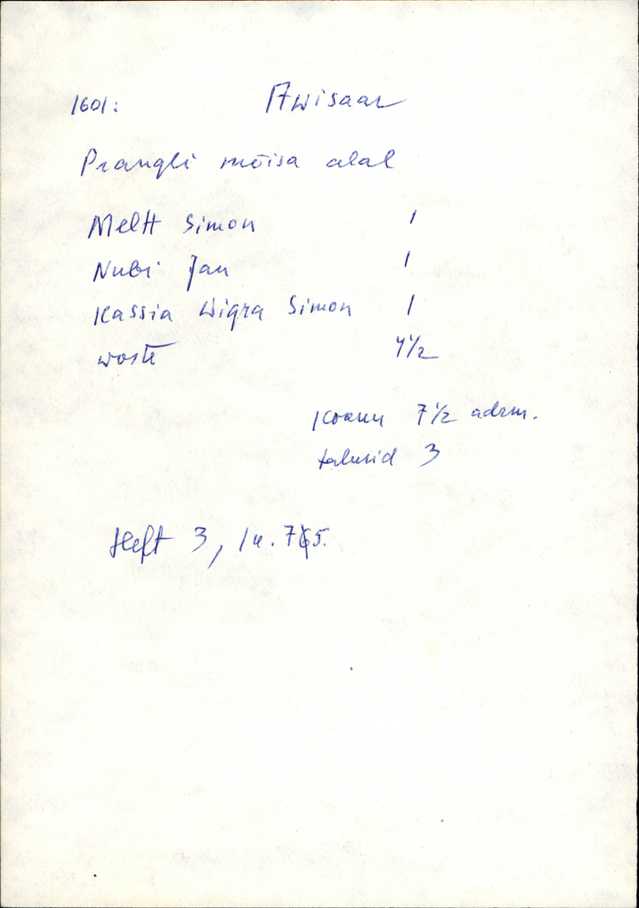 1601: Awisaar
Prangli mõisa alal
Meltt Simon 1
Nubi Jan 1
Kassia Wigra Simon 1
woste 4 1/2
Koccu 7 1/2 adrm.
talusid 3
Heft 3, lk. 765.